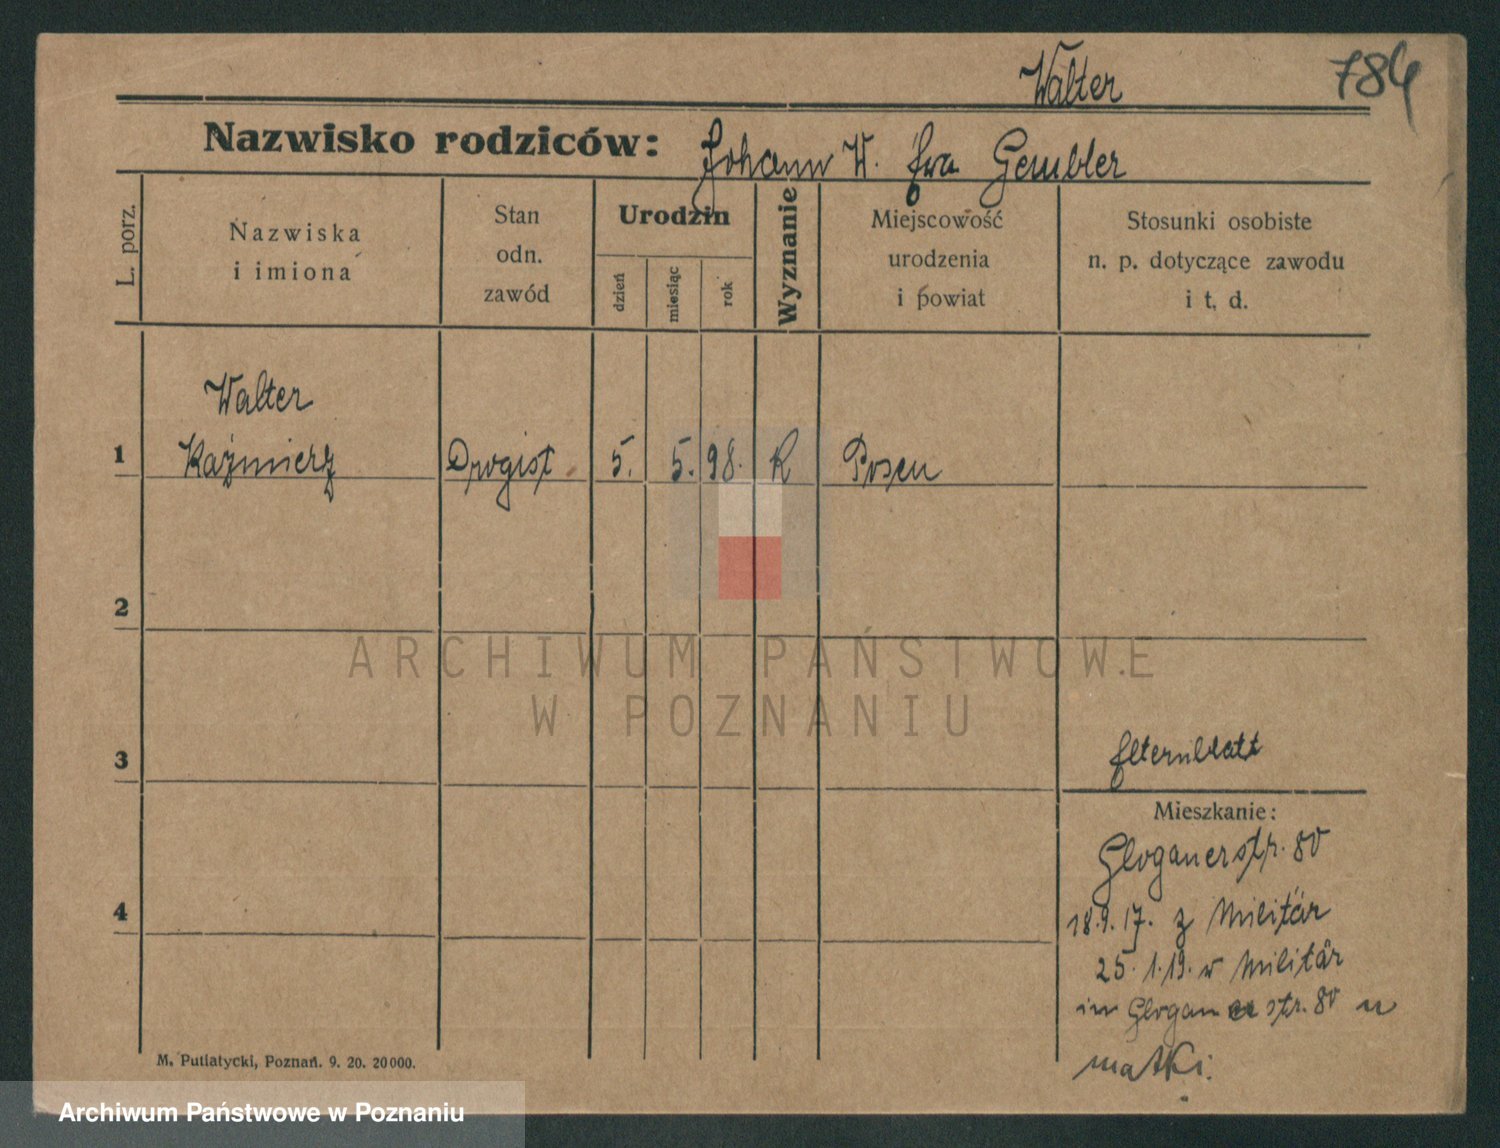 Walter
784
Nazwisko rodziców: Johann W. Ewa Gembler
L. porz.
Nazwiska
i imiona
Stan
odn.
zawód
Urodzin
dzień
miesiąc
rok
Wyznanie
Miejscowość
urodzenia
i powiat
Stosunki osobiste
n. p. dotyczące zawodu
i t. d.
Walter
1 Kaźmierz Drogist 5. 5. 98. K Posen
2
ARCHIWUM PAŃSTWOWE
W POZNANIU
3
Elternblatt
Mieszkanie:
Glogauerstr. 80
4
18.9.17. z Militär
25.1.19. w Militär
in Glogauerstr. 80 u
matki.
M. Putiatycki, Poznań. 9. 20. 20000.
Archiwum Państwowe w Poznaniu